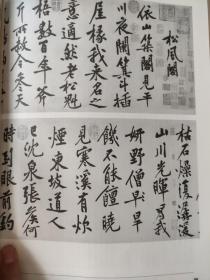 松風閣
依山築閣見平
川夜闌箕斗插
屋椽我來名之
意適然老松魁
梧數百年斧
斤所赦今參天
枯石燥復潺湲
山川光暉為我
妍野僧早旱
饑不能饘曉
見寒溪有炊
煙東坡道人
已沈泉張侯何
時到眼前釣